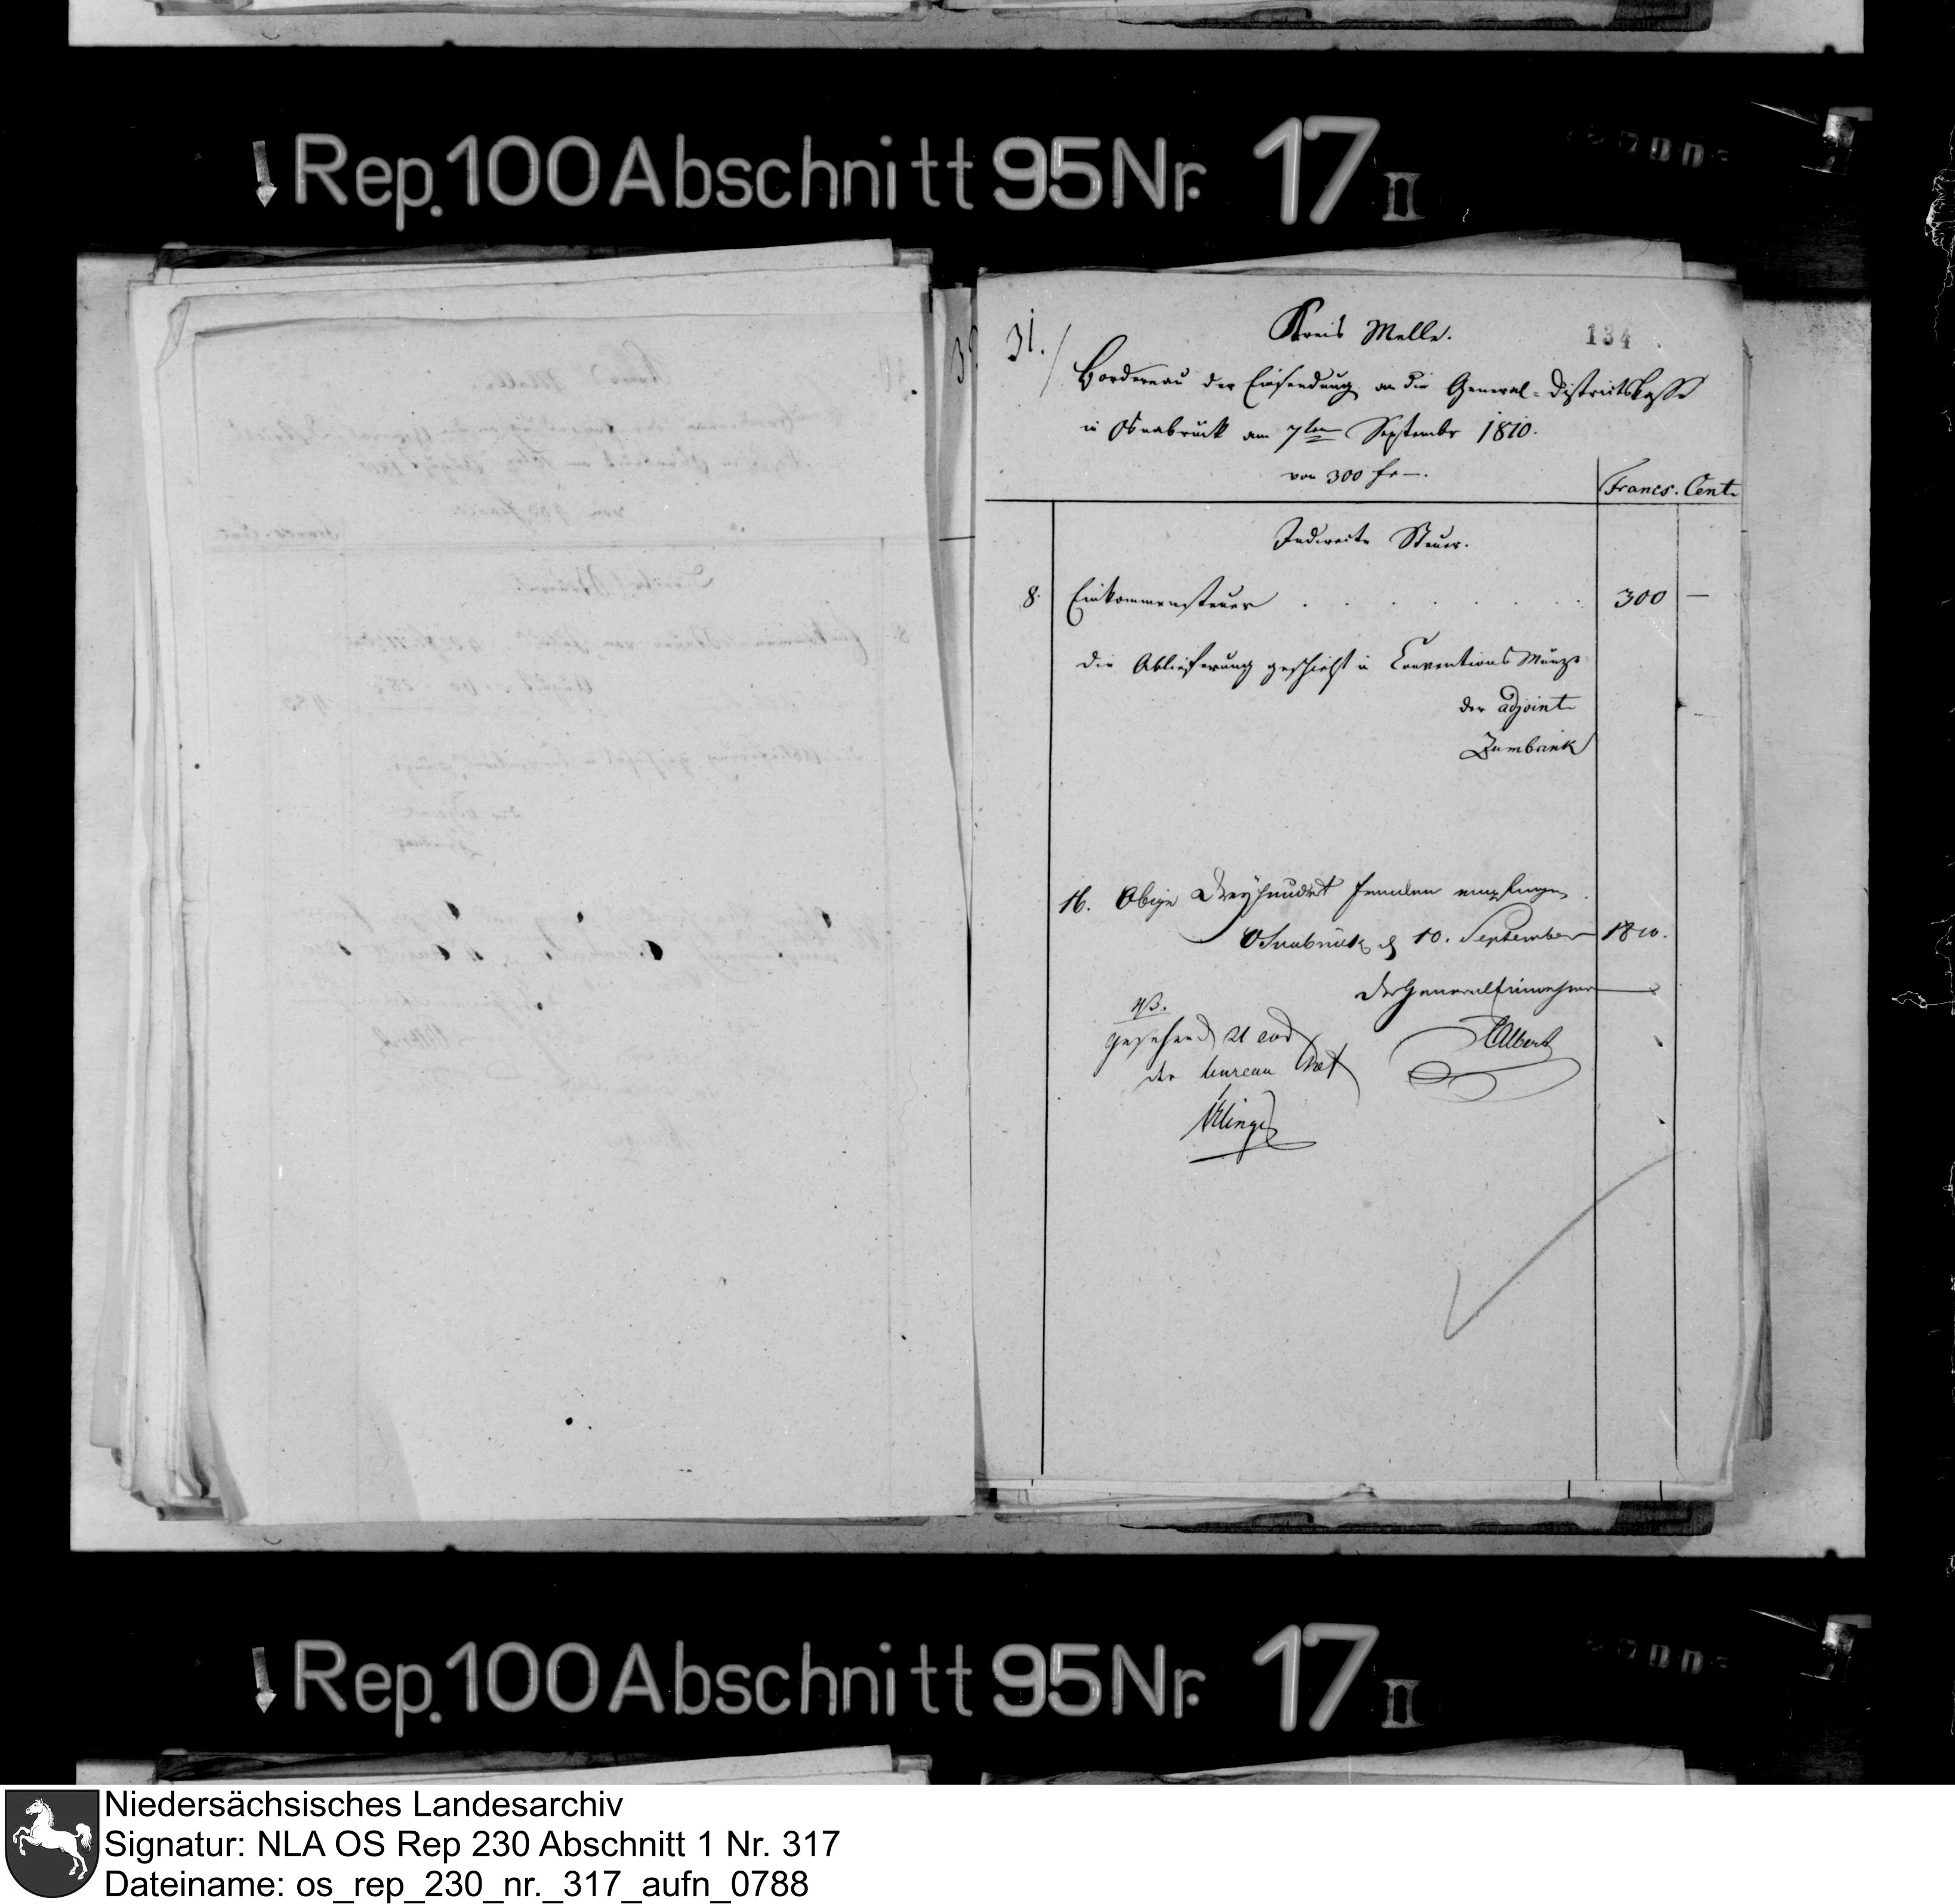 Rep. 100 Abschnitt 95 Nr. 17 II
31.
Kreis Melle.
134
Bordereau der Einsendung an die General-Districtskasse
in Osnabrück am 7ten September 1810.
von 300 fr —.
Francs. Cent.
Indirecte Steuer.
8. Einkommensteuer . . . . . . . . 300 —
die Ablieferung geschieht in Conventions Münze
der adjoint
Zumbrink
16. Obige Dreyhundert Franken empfangen
Osnabrück d 10. September 1810.
Der General Einnehmer
NB.
gesehen
der bureau Chef
Albert
Rep. 100 Abschnitt 95 Nr. 17 II
Niedersächsisches Landesarchiv
Signatur: NLA OS Rep 230 Abschnitt 1 Nr. 317
Dateiname: os_rep_230_nr._317_aufn_0788